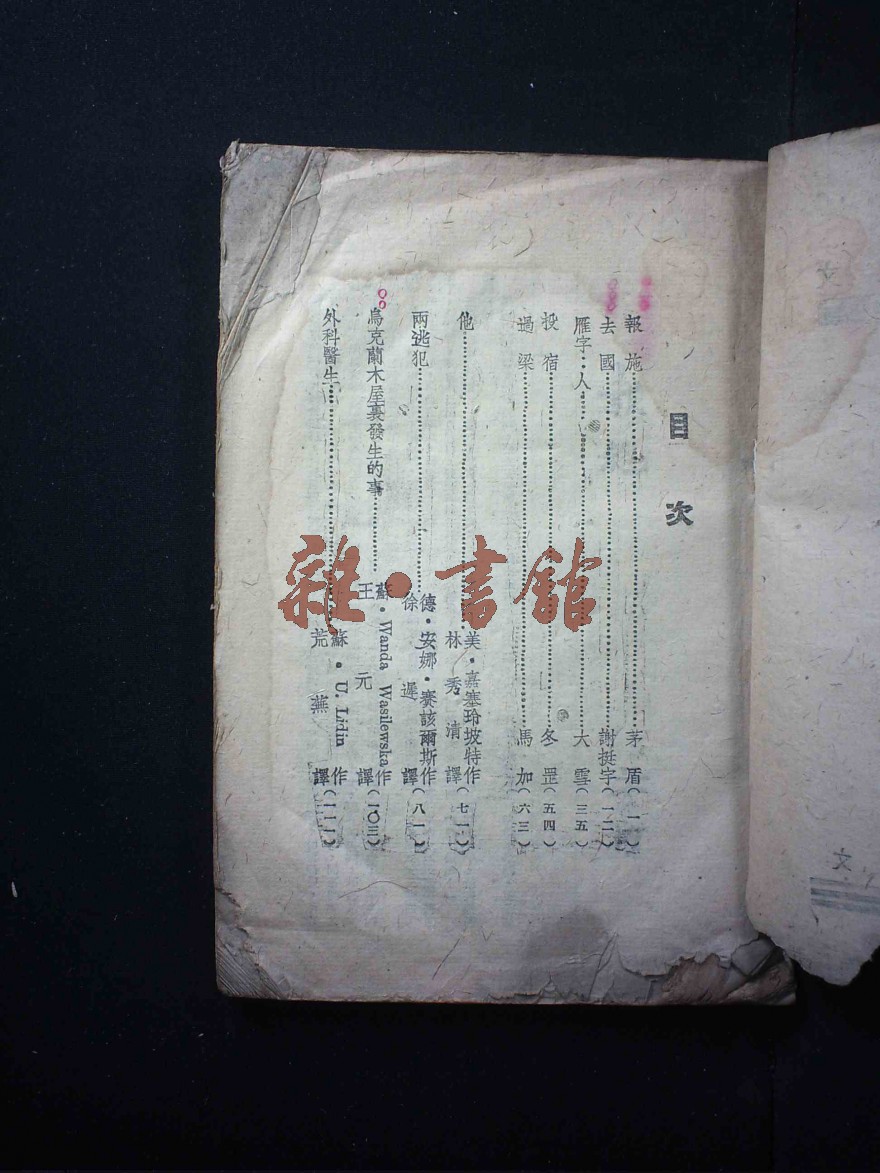 目次
報施……茅盾(一)
去國……謝挺宇(一二)
雁字‥人……大雪(三五)
投宿……冬罡(五四)
過梁……馬加(六三)
他……美·嘉塞玲坡特作
林秀清譯(七一)
兩逃犯……德·安娜·賽該爾斯作
徐遲譯(八一)
烏克蘭木屋裏發生的事……蘇·Wanda Wasilewska作
王元譯(一〇三)
外科醫生……蘇·U. Lidin作
荒蕪譯(一一一)
雜·書館
文